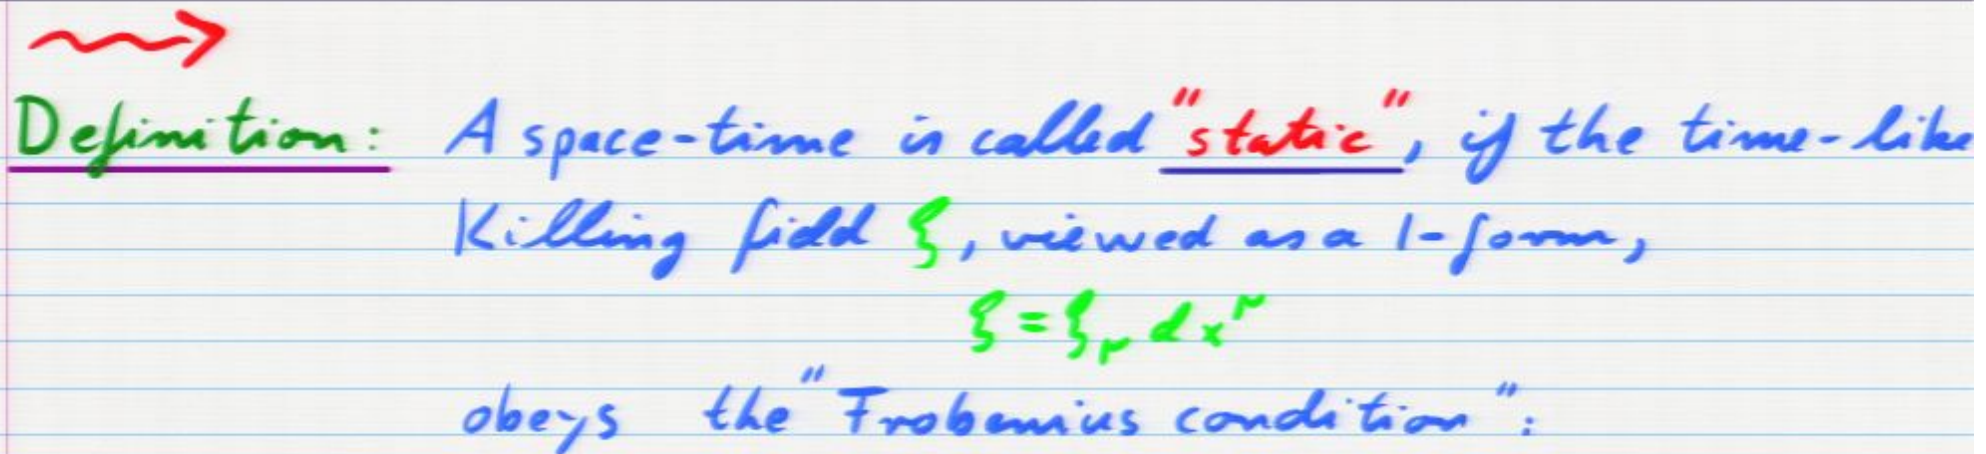 Definition: A space-time is called "static", if the time-like
Killing field ξ, viewed as a 1-form,
ξ = ξ_μ dx^μ
obeys the "Frobenius condition":